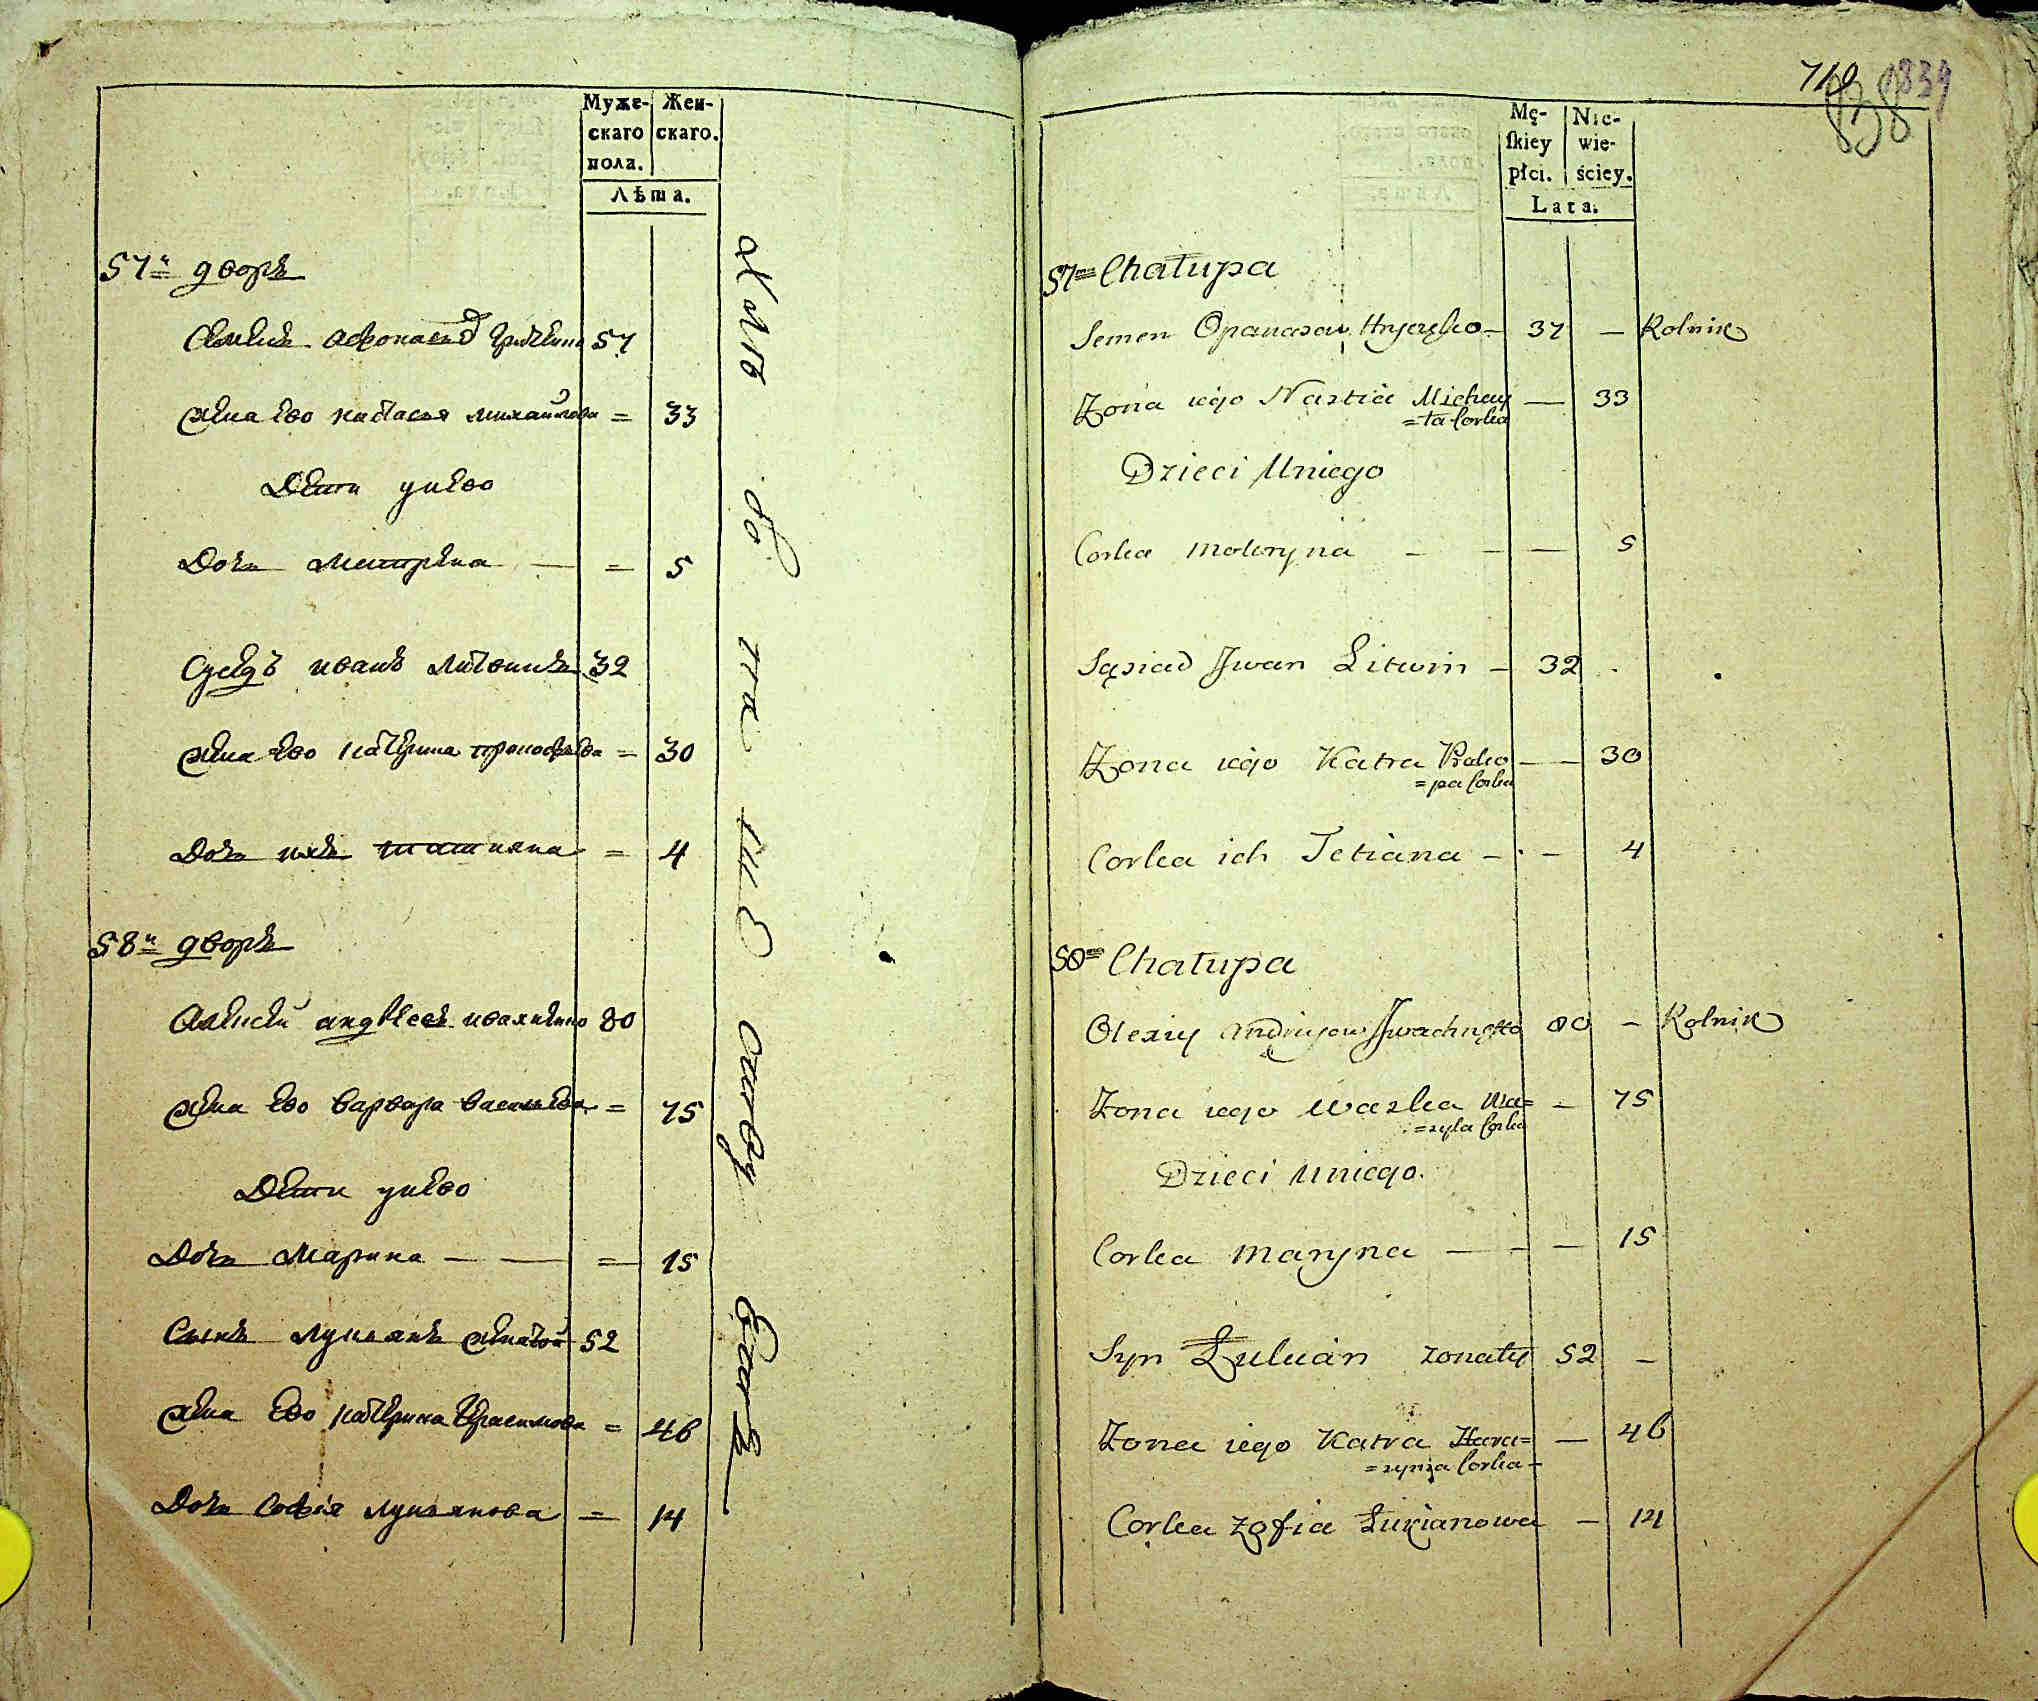 Муже- Жен-
скаго скаго.
пола.
Лѣта.
57й дворъ
Семенъ Афонасьевъ 57
жена ево настасья михайлова = 33
Дети унево
Дочь Матрена — = 5
Суседъ иванъ литвинъ 32
жена ево катерина прокофьева = 30
Дочь ихъ татияна = 4
58й дворъ
Алексей андреевъ 80
жена ево варвара васильева = 75
Дети унево
Дочь Марина — — = 15
Сынъ лукьянъ женатой 52
жена ево катерина герасимова = 46
Дочь Софья лукьянова = 14
710 839
838
Mę- Nie-
ſkiey wie-
płci. ściey.
Lata.
57ma Chałupa
Semen Opanasow Hryczko – 37 – Rolnik
Zona iego Nastia Michay — 33
=ła Corka
Dzieci Uniego
Corka Motryna – – — 5
Sąsiad Jwan Litwin – 32 -
Zona iego Katra Proko — — 30
=pa Corka
Corka ich Tetiana – - – 4
58ma Chałupa
Olexiy Andriyow 80 – Rolnik
Zona iego Warka Wa= – 75
=syla Corka
Dzieci Uniego.
Corka Maryna — – — 15
Syn Łukian zonaty 52 –
Zona iego Katra Hara= — 46
=syma Corka –
Corka Zofia Łukianowa – 14